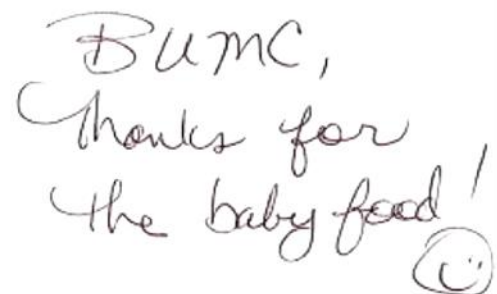 BUMC,
Thanks for
the baby food!